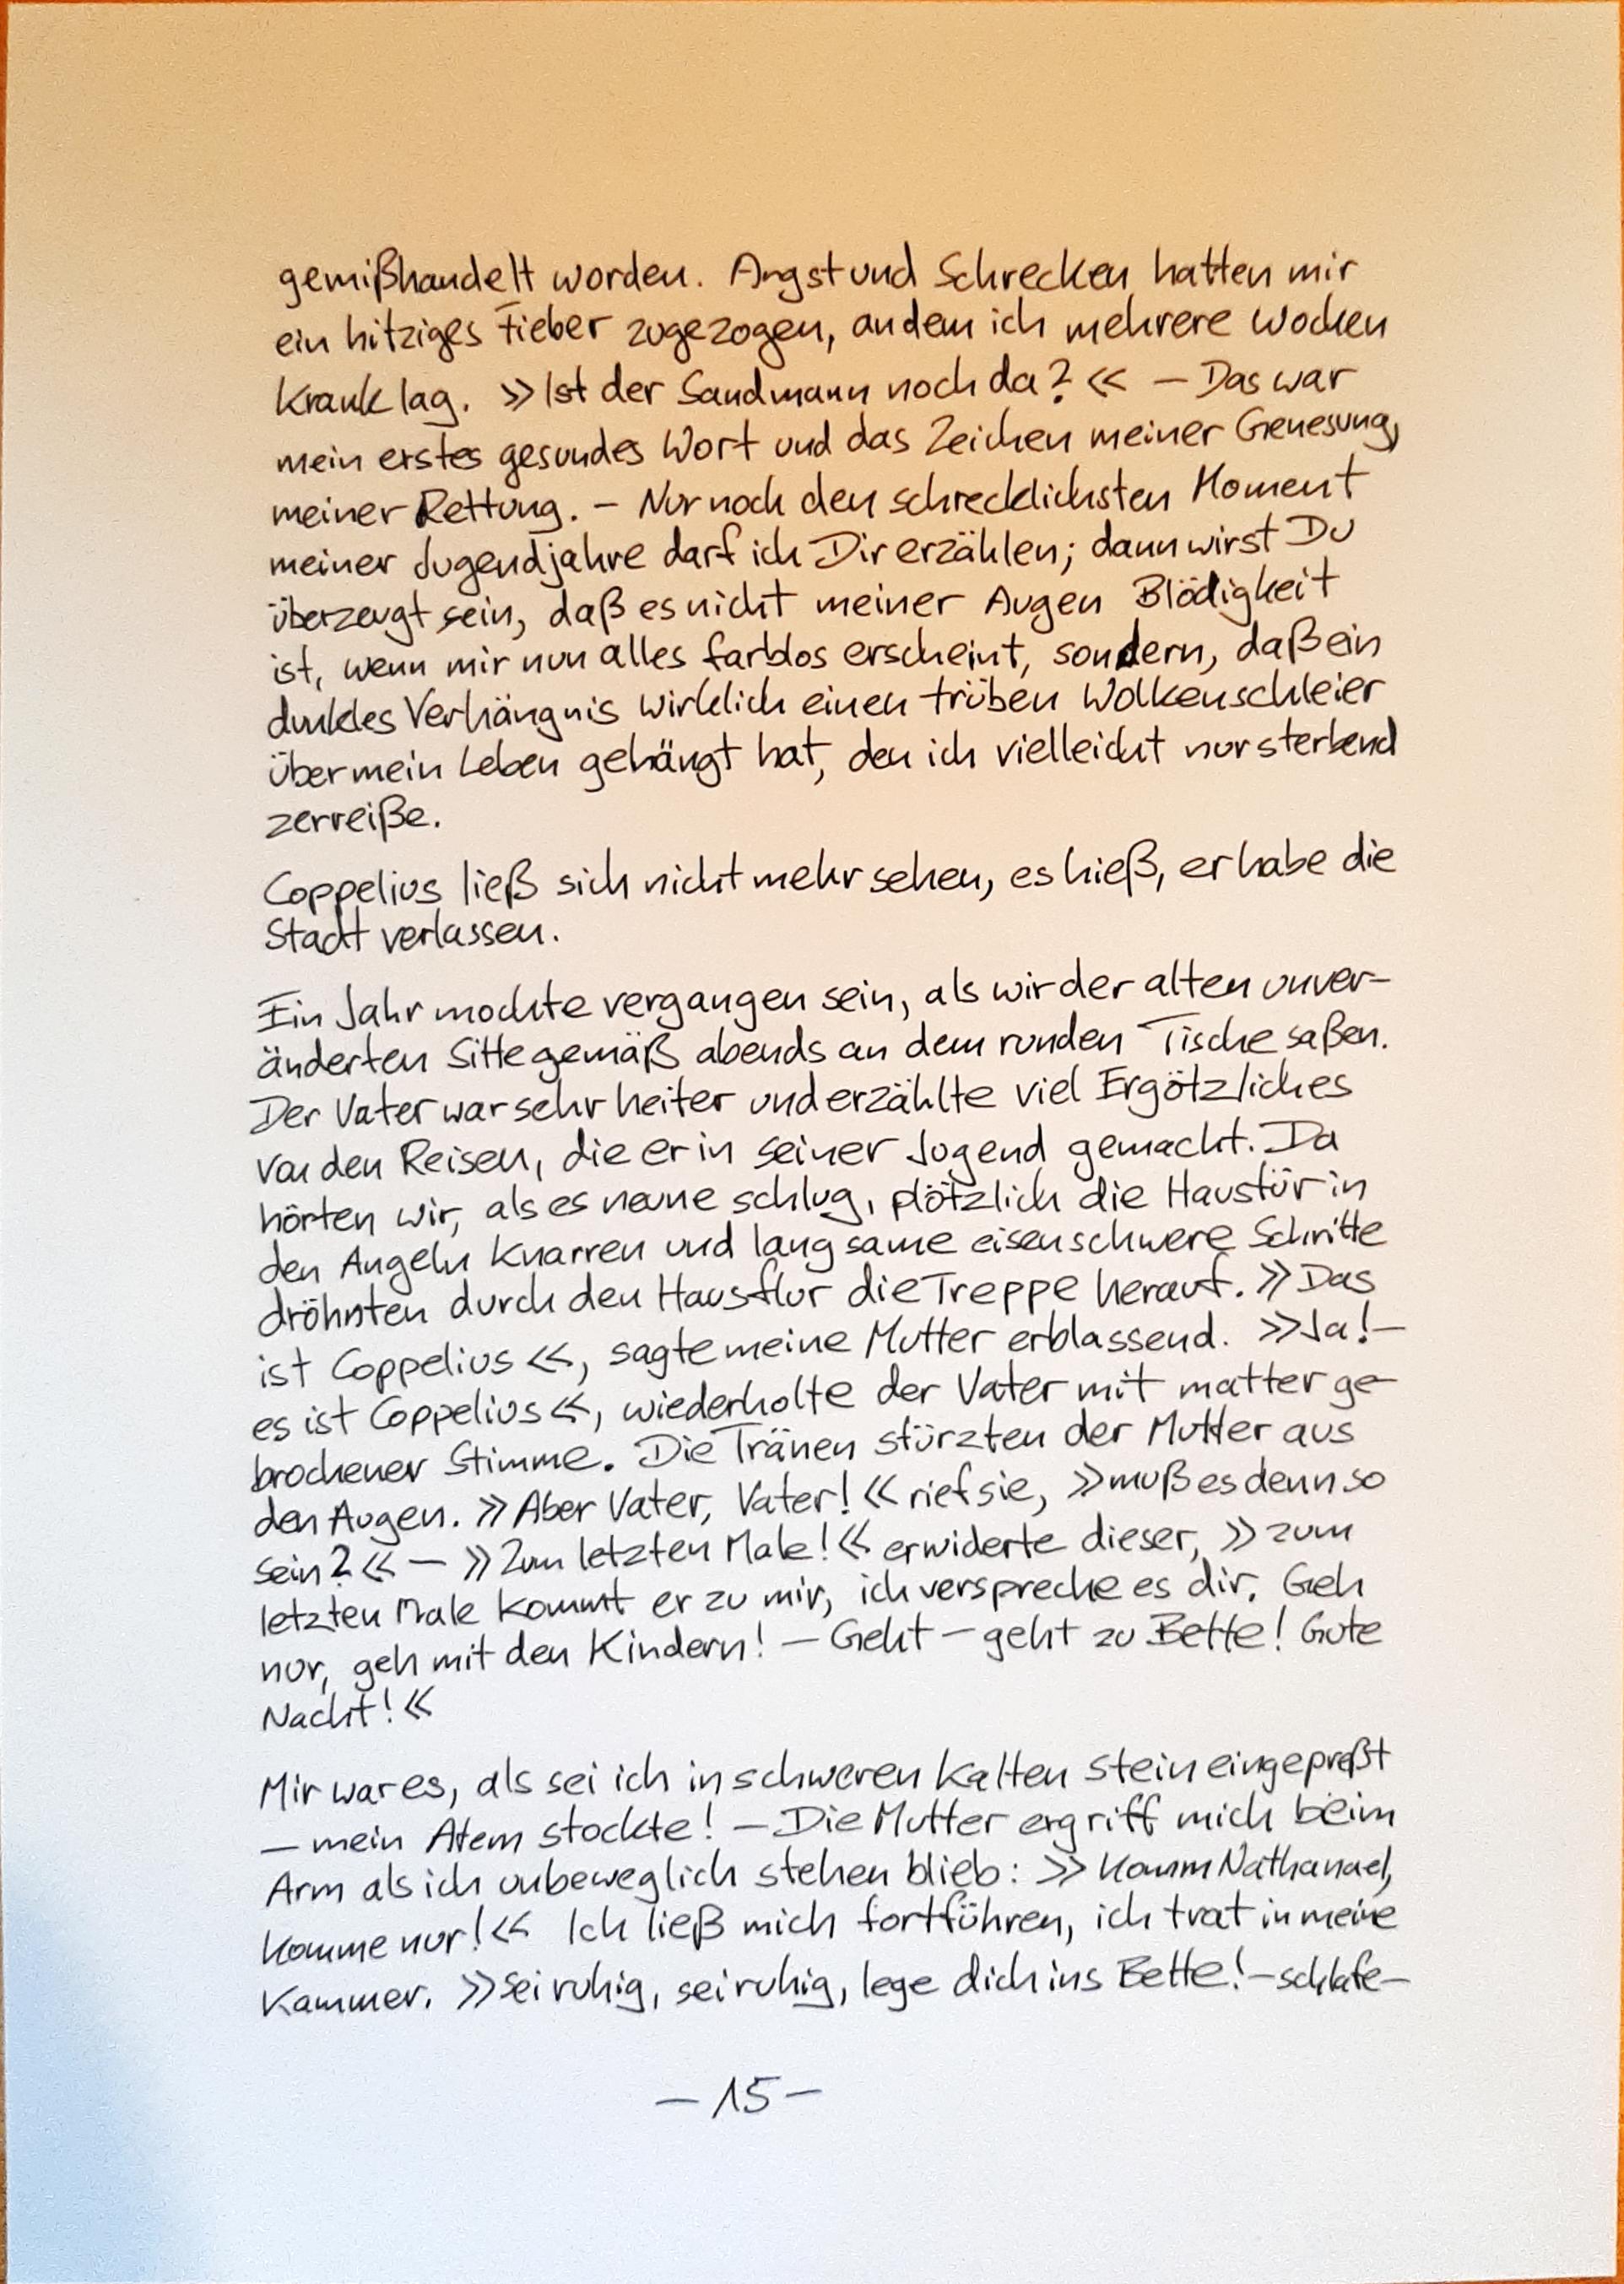 gemißhandelt worden. Angst und Schrecken hatten mir
ein hitziges Fieber zugezogen, an dem ich mehrere Wochen
krank lag. »Ist der Sandmann noch da?« – Das war
mein erstes gesundes Wort und das Zeichen meiner Genesung,
meiner Rettung. – Nur noch den schrecklichsten Moment
meiner Jugendjahre darf ich Dir erzählen; dann wirst Du
überzeugt sein, daß es nicht meiner Augen Blödigkeit
ist, wenn mir nun alles farblos erscheint, sondern, daß ein
dunkles Verhängnis wirklich einen trüben Wolkenschleier
über mein Leben gehängt hat, den ich vielleicht nur sterbend
zerreiße.
Coppelius ließ sich nicht mehr sehen, es hieß, er habe die
Stadt verlassen.
Ein Jahr mochte vergangen sein, als wir der alten unver-
änderten Sitte gemäß abends an dem runden Tische saßen.
Der Vater war sehr heiter und erzählte viel Ergötzliches
von den Reisen, die er in seiner Jugend gemacht. Da
hörten wir, als es neune schlug, plötzlich die Haustür in
den Angeln knarren und langsame eisenschwere Schritte
dröhnten durch den Hausflur die Treppe herauf. »Das
ist Coppelius«, sagte meine Mutter erblassend. »Ja! –
es ist Coppelius«, wiederholte der Vater mit matter ge-
brochener Stimme. Die Tränen stürzten der Mutter aus
den Augen. »Aber Vater, Vater!« rief sie, »muß es denn so
sein?« – »Zum letzten Male!« erwiderte dieser, »zum
letzten Male kommt er zu mir, ich verspreche es dir. Geh
nur, geh mit den Kindern! – Geht – geht zu Bette! Gute
Nacht!«
Mir war es, als sei ich in schweren kalten Stein eingepreßt
– mein Atem stockte! – Die Mutter ergriff mich beim
Arm als ich unbeweglich stehen blieb: »Komm Nathanael,
komme nur!« Ich ließ mich fortführen, ich trat in meine
Kammer. »Sei ruhig, sei ruhig, lege dich ins Bette! – schlafe –
– 15 –